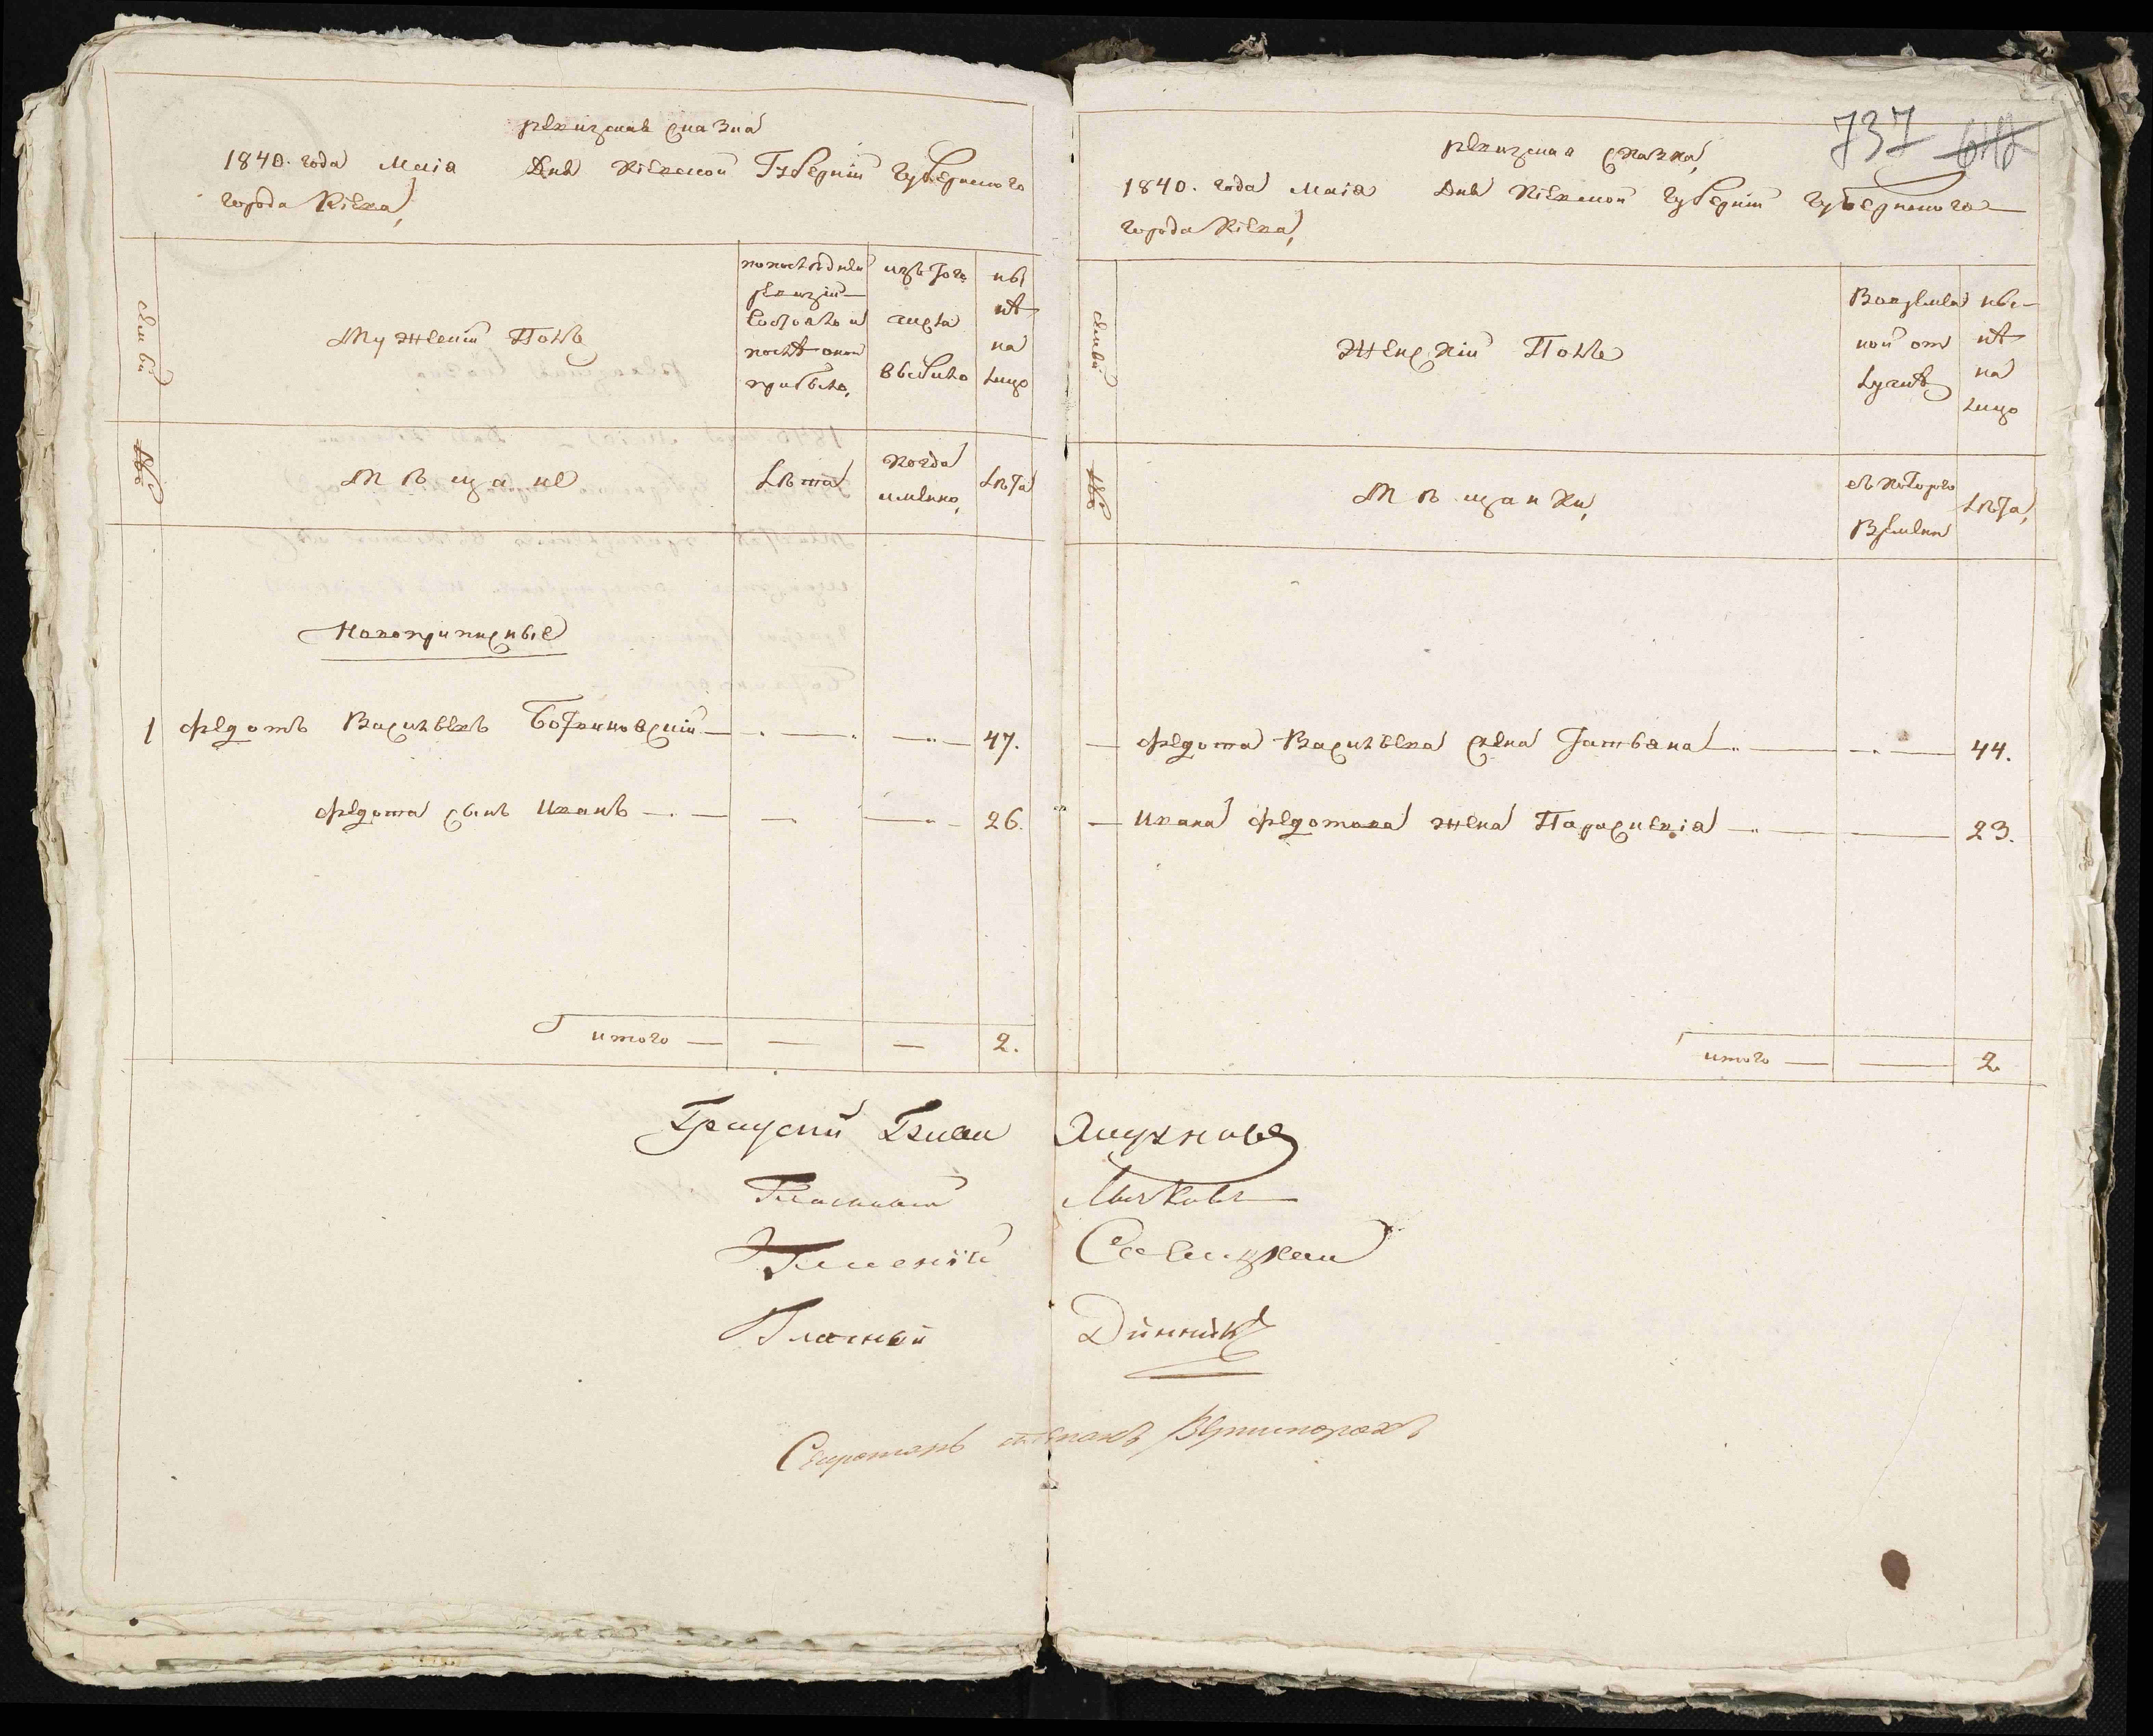 ревизская сказка
1840. года Маія Дня Кіевской Губерніи Губернского
города Кіева,
семьи
Мужескій Полъ
по последней
ревизіи
состояло и
после оной
прибыло,
изъ того
числа
выбыло
ны
не
на
лицо
№
Мѣщане
Лѣта
когда
именно,
Лѣта
Новоприписные
1 Федотъ Васильевъ 47.
Федота сынъ Иванъ 26.
итого 2.
737
ревизская сказка,
1840. года Маія Дня Кіевской Губерніи Губернского
города Кіева,
семьи
Женскій Полъ
Во временной отлучкѣ
ны
нѣ
на
лицо
№
Мѣщанки,
съ котораго
времени
Лѣта,
Федота Васильева жена Татьяна 44.
Ивана Федотова жена Параскевія 23.
итого 2
Градскій Глава
Гласный
Гласный Савицкий
Гласный Динникъ